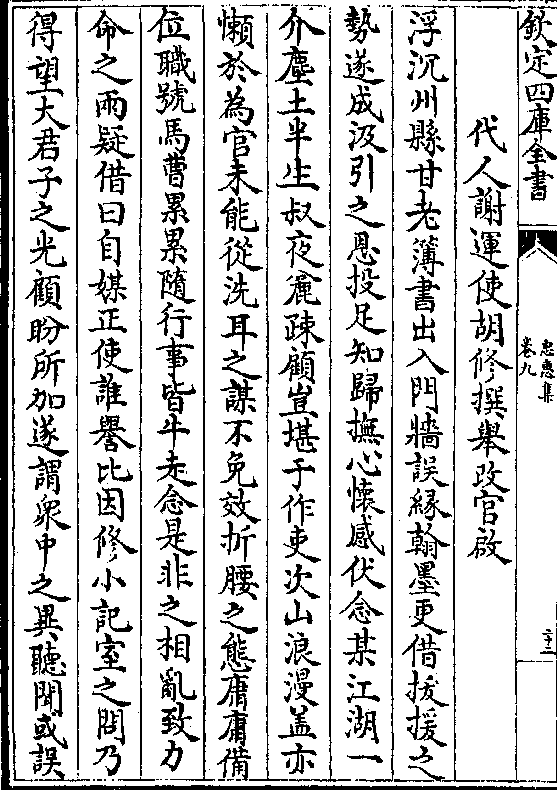 欽定四庫全書
忠惠集
卷九
二十三
代人謝運使胡修撰舉改官啟
浮沉州縣甘老簿書出入門牆誤緣翰墨更借拔援之
勢遂成汲引之恩投足知歸撫心懷感伏念某江湖一
介塵土半生叔夜麄疎顧豈堪于作吏次山浪漫盖亦
懶於為官未能從洗耳之謀不免效折腰之態庸庸備
位職號馬曹累累隨行事皆牛走念是非之相亂致力
命之兩疑借曰自媒正使誰譽比因修小記室之問乃
得望大君子之光顧盼所加遂謂衆中之異聽聞或誤